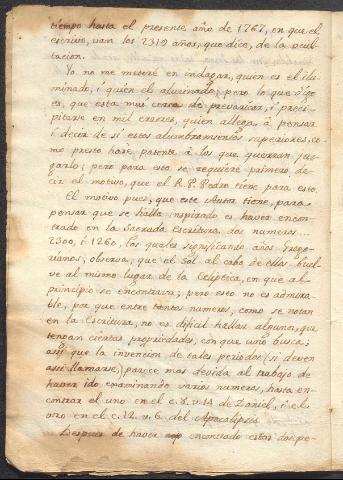 tiempo hasta el presente año de 1767, en que el
escrivo, van los 2319 años, que dice, de la ocul-
tacion.
Yo no me meteré en indagar, quien es el ilu-
minado, i quien el alucinado; pero lo que digo
es, que esta mui cerca de prevaricar, i preci-
pitarse en mil errores, quien allega à pensar
i decir de si estos alumbramientos superiores, co
mo presto haré patente à los que querran juz-
garlo; pero para esto se requiere primero de-
cir el motivo, que el R. P. Pedro tiene para esto.
El motivo pues, que este Autor tiene, para
pensar que se halla inspirado es haver encon-
trado en la Sagrada Escritura dos numeros
2300, i 1260, los quales significando años grego-
rianos, observa, que el Sol al cabo de ellos buel-
ve al mismo lugar de la Ecliptica, en que al
principio se encontrava; pero esto no es admira-
ble, por que entre tantos numeros, como se notan
en la Escritura, no es dificil hallar algunos, que
tengan ciertas propriedades, con que uno busca;
assi que la invencion de tales periodos (si deven
assi llamarse,) parece mas devida al trabajo de
haver ido examinando varios numeros, hasta en-
contrar el uno en el c. 8. v. 14 de Daniel, i el
otro en el c. 12. v. 6. del Apocalipsis.
Despues de haver encontrado estos dos pe-